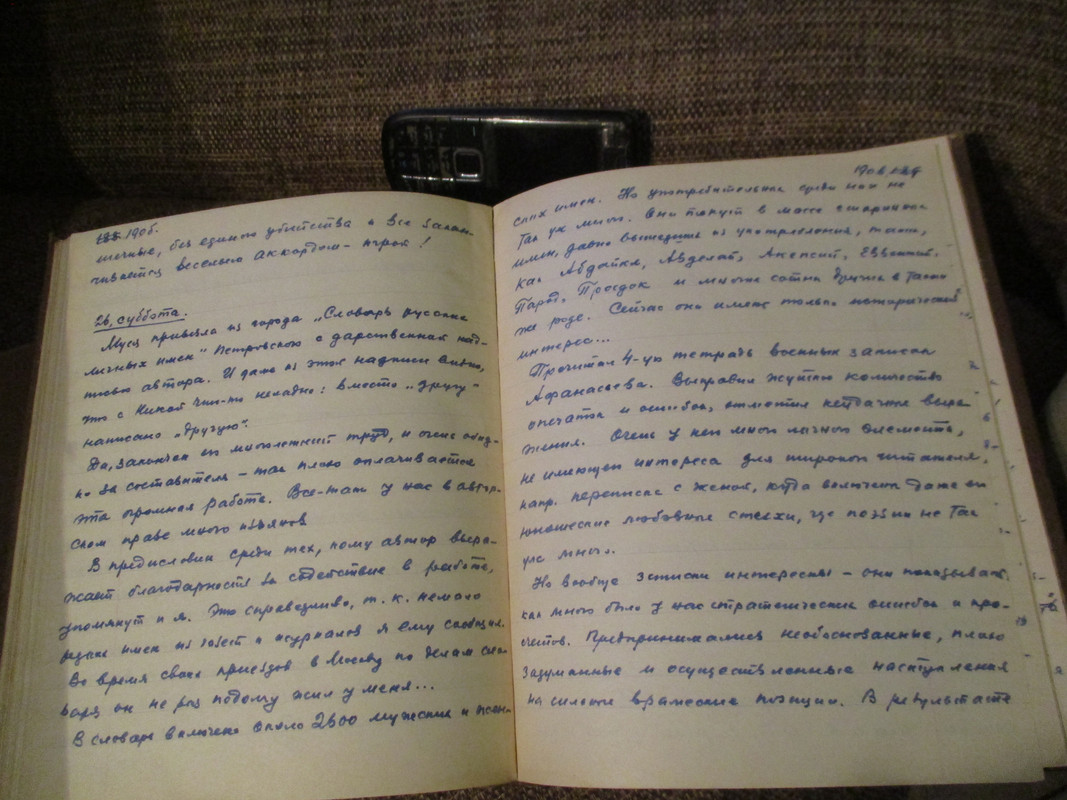 1906.
шечные, без единого убийства и все закан-
чивается веселым аккордом
26, суббота.
Муся привезла из города „Словарь русских
личных имен" Петровского с дарственной над-
писью автора. И даже из этой надписи видно,
что с Никой что-то неладно: вместо „другу"
написано „другую".
Да, закончен им многолетний труд, и очень обид-
но за составителя – так плохо оплачивается
эта огромная работа. Все-таки у нас в автор-
ском праве много изъянов
В предисловии среди тех, кому автор выра-
жает благодарность за содействие в работе,
упомянут и я. Это справедливо, т. к. немало
имен из газет и журналов я ему сообщил.
Во время своих приездов в Москву по делам сло-
варя он не раз подолгу жил у меня...
В словарь включено около 2600 мужских и жен-
1906
ских имен. Но употребительных среди них не
так уж много. Они тонут в массе старинных
имен, давно вышедших из употребления, таких,
как Абдайкл, Авделай, Акепсий, Еввентий,
Парод, Проздок и многие сотни других в таком
же роде. Сейчас они имеют только исторический
интерес...
Прочитал 4-ую тетрадь военных записок
Афанасьева. Выправил жуткое количество
опечаток и ошибок, отметил неудачные выра-
жения. Очень у него много личного элемента,
не имеющего интереса для широкого читателя,
напр. переписка с женой, куда включены даже его
юношеские любовные стихи, где поэзии не так
уж много.
Но вообще записки интересны – они показывают,
как много было у нас стратегических ошибок и про-
счетов. Предпринимались необоснованные, плохо
задуманные и осуществленные наступления
на сильные вражеские позиции. В результате